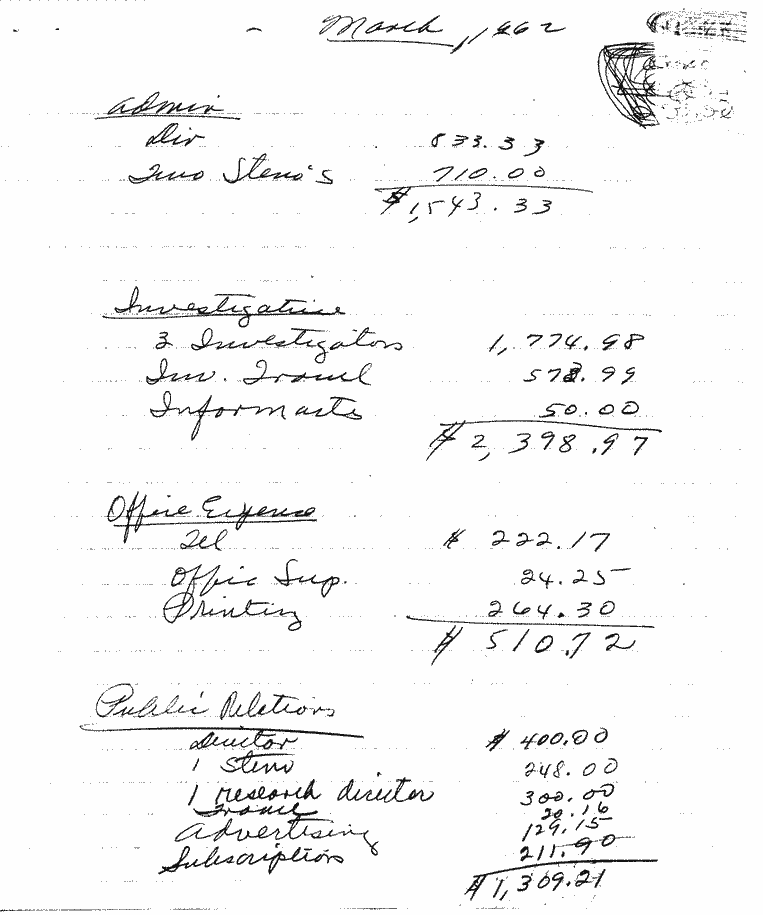 March, 1962
Admin
Dir 833.33
Two Steno's 710.00
$1,543.33
Investigative
3 Investigators 1,774.98
Inv. Travel 573.99
Informants 50.00
$2,398.97
Office Expense
Tel $ 222.17
Offic Sup. 24.25
Printing 264.30
$ 510.72
Public Relations
Director $ 400.00
1 Steno 248.00
1 research director 300.00
Travel 20.16
Advertising 129.15
Subscriptions 211.90
$1,309.21